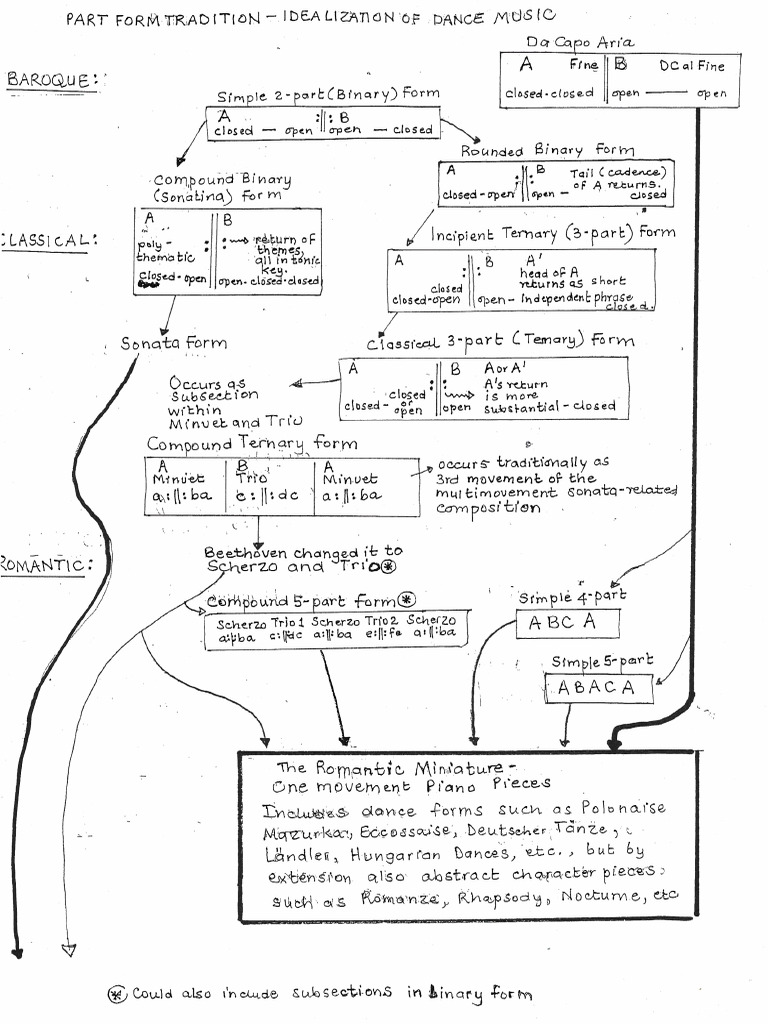 PART FORM TRADITION - IDEALIZATION OF DANCE MUSIC
BAROQUE:
Da Capo Aria
A Fine B DC al Fine
closed-closed open — open
Simple 2-part (Binary) Form
A :||: B
closed — open open — closed
Rounded Binary Form
A :||: B Tail (cadence)
of A returns.
closed-open open - closed
Compound Binary
(Sonatina) form
A B
poly-
thematic
:||: return of
themes,
all in tonic
key.
closed-open open-closed-closed
CLASSICAL:
Incipient Ternary (3-part) Form
A :||: B A'
head of A
returns as short
independent phrase
closed
closed-open open - closed.
Sonata Form
Classical 3-part (Ternary) Form
A :||: B A or A'
A's return
is more
substantial - closed
closed- closed
or
open open
Occurs as
subsection
within
Minuet and Trio
Compound Ternary form
A B A
Minuet Trio Minuet
a:||:ba c:||:dc a:||:ba
occurs traditionally as
3rd movement of the
multimovement sonata-related
composition
ROMANTIC:
Beethoven changed it to
Scherzo and Trio ⊛
Compound 5-part form ⊛
Scherzo Trio 1 Scherzo Trio 2 Scherzo
a:||:ba c:||:dc a:||:ba e:||:fe a:||:ba
Simple 4-part
A B C A
Simple 5-part
A B A C A
The Romantic Miniature -
One movement Piano Pieces
Includes dance forms such as Polonaise
Mazurka, Eccossaise, Deutscher Tänze,
Ländler, Hungarian Dances, etc., but by
extension also abstract character pieces
such as Romanze, Rhapsody, Nocturne, etc
⊛ Could also include subsections in binary form